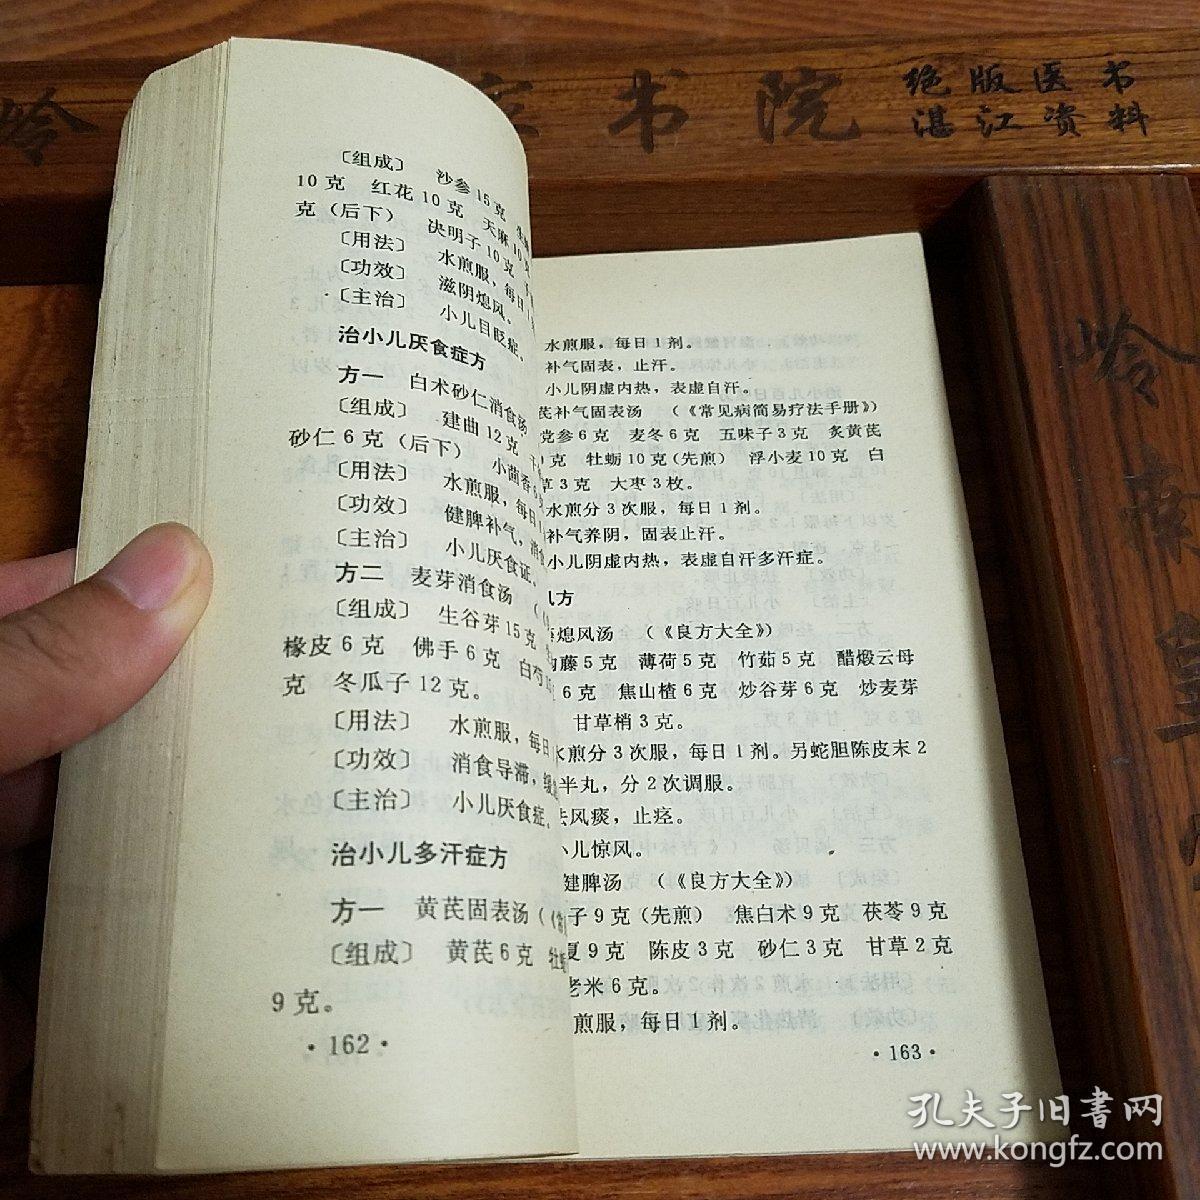 书院
绝版医书
湛江资料
〔组成〕 沙参15克
10克 红花10克 天麻10克
克（后下） 决明子10克
〔用法〕 水煎服，每日
〔功效〕 滋阴熄风。
〔主治〕 小儿目眨症。
治小儿厌食症方
方一 白术砂仁消食汤
〔组成〕 建曲12克
砂仁6克（后下） 小茴香6克
〔用法〕 水煎服，每日
〔功效〕 健脾补气，消食
〔主治〕 小儿厌食证。
方二 麦芽消食汤（
〔组成〕 生谷芽15克
橡皮6克 佛手6克 白芍
克 冬瓜子12克。
〔用法〕 水煎服，每日
〔功效〕 消食导滞，
〔主治〕 小儿厌食症。
治小儿多汗症方
方一 黄芪固表汤（《
〔组成〕 黄芪6克 牡
9克。
·162·
水煎服，每日1剂。
补气固表，止汗。
小儿阴虚内热，表虚自汗。
芪补气固表汤 （《常见病简易疗法手册》）
党参6克 麦冬6克 五味子3克 炙黄芪
克 牡蛎10克（先煎） 浮小麦10克 白
草3克 大枣3枚。
水煎分3次服，每日1剂。
补气养阴，固表止汗。
小儿阴虚内热，表虚自汗多汗症。
风方
熄风汤 （《良方大全》）
勾藤5克 薄荷5克 竹茹5克 醋煅云母
6克 焦山楂6克 炒谷芽6克 炒麦芽
甘草梢3克。
水煎分3次服，每日1剂。另蛇胆陈皮末2
半丸，分2次调服。
去风痰，止痉。
小儿惊风。
健脾汤 （《良方大全》）
子9克（先煎） 焦白术9克 茯苓9克
夏9克 陈皮3克 砂仁3克 甘草2克
老米6克。
煎服，每日1剂。
·163·
孔夫子旧书网
www.kongfz.com